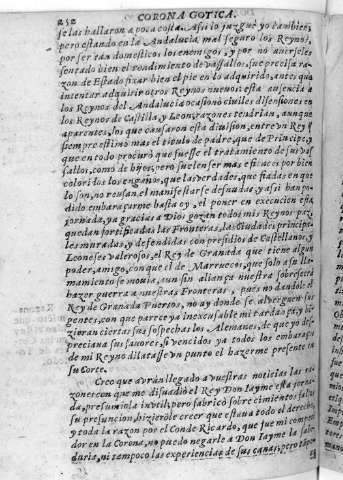 252 CORONA GOTICA.
se las hallaron a poca costa. Assi lo juzguè yo tambien,
pero estando en la Andalucia mal seguro los Reynos,
por ser tan domesticos los enemigos, y por no averseles
sentado bien el rendimiento de vassallos, fue precisa ra-
zon de Estado fixar bien el pie en lo adquirido, antes que
intentar adquirir otros Reynos nuevos: esta ausencia a
los Reynos del Andalucia ocasionò civiles disensiones en
los Reynos de Castilla, y Leon, razones tendrian, aunque
aparentes, los que causaron esta division, entre un Rey q̃
siempre estimò mas el titulo de padre, que de Principe, y
que en todo procurò que fuesse el tratamiento de sus vas
sallos, como de hijos, pero suelen ser mas eficaces por bien
coloridos los engaños, que las verdades, que fiadas en que
lo son, no reusan el manifestarse desnudas, y assi han po-
dido embaraçarme hasta oy, el poner en execucion esta
jornada, ya gracias a Dios gozan todos mis Reynos paz,
quedan fortificadas las Fronteras, las Ciudades principa-
les muradas, y defendidas con presidios de Castellanos, y
Leoneses valerosos, el Rey de Granada que tiene algun
poder, amigo, con que el de Marruecos, que solo a su lla-
mamiento se movia, aun sin aliança nuestra sobreserà
hazer guerra a nuestras Fronteras, pues no dandole el
Rey de Granada Puertos, no ay donde se alverguen sus
gentes, con que parece ya inexcusable mi tardança, y hi-
zieran ciertas sus sospechas los Alemanes, de que yo des-
preciava sus favores, si vencidos ya todos los embaraços
de mi Reyno dilatasse un punto el hazerme presente en
su Corte.
Creo que avràn llegado a vuestras noticias las ra-
zones con que me disuadiò el Rey Don Iayme esta jorna-
da, presumiola inutil, pero fabricò sobre cimientos falsos
su presuncion, hizierōle creer que estava todo el derecho,
y toda la razon por el Conde Ricardo, que fue mi competi-
dor en la Corona, no puedo negarle a Don Iayme la sabi-
duria, ni tampoco las experiencias de sus canas, pero